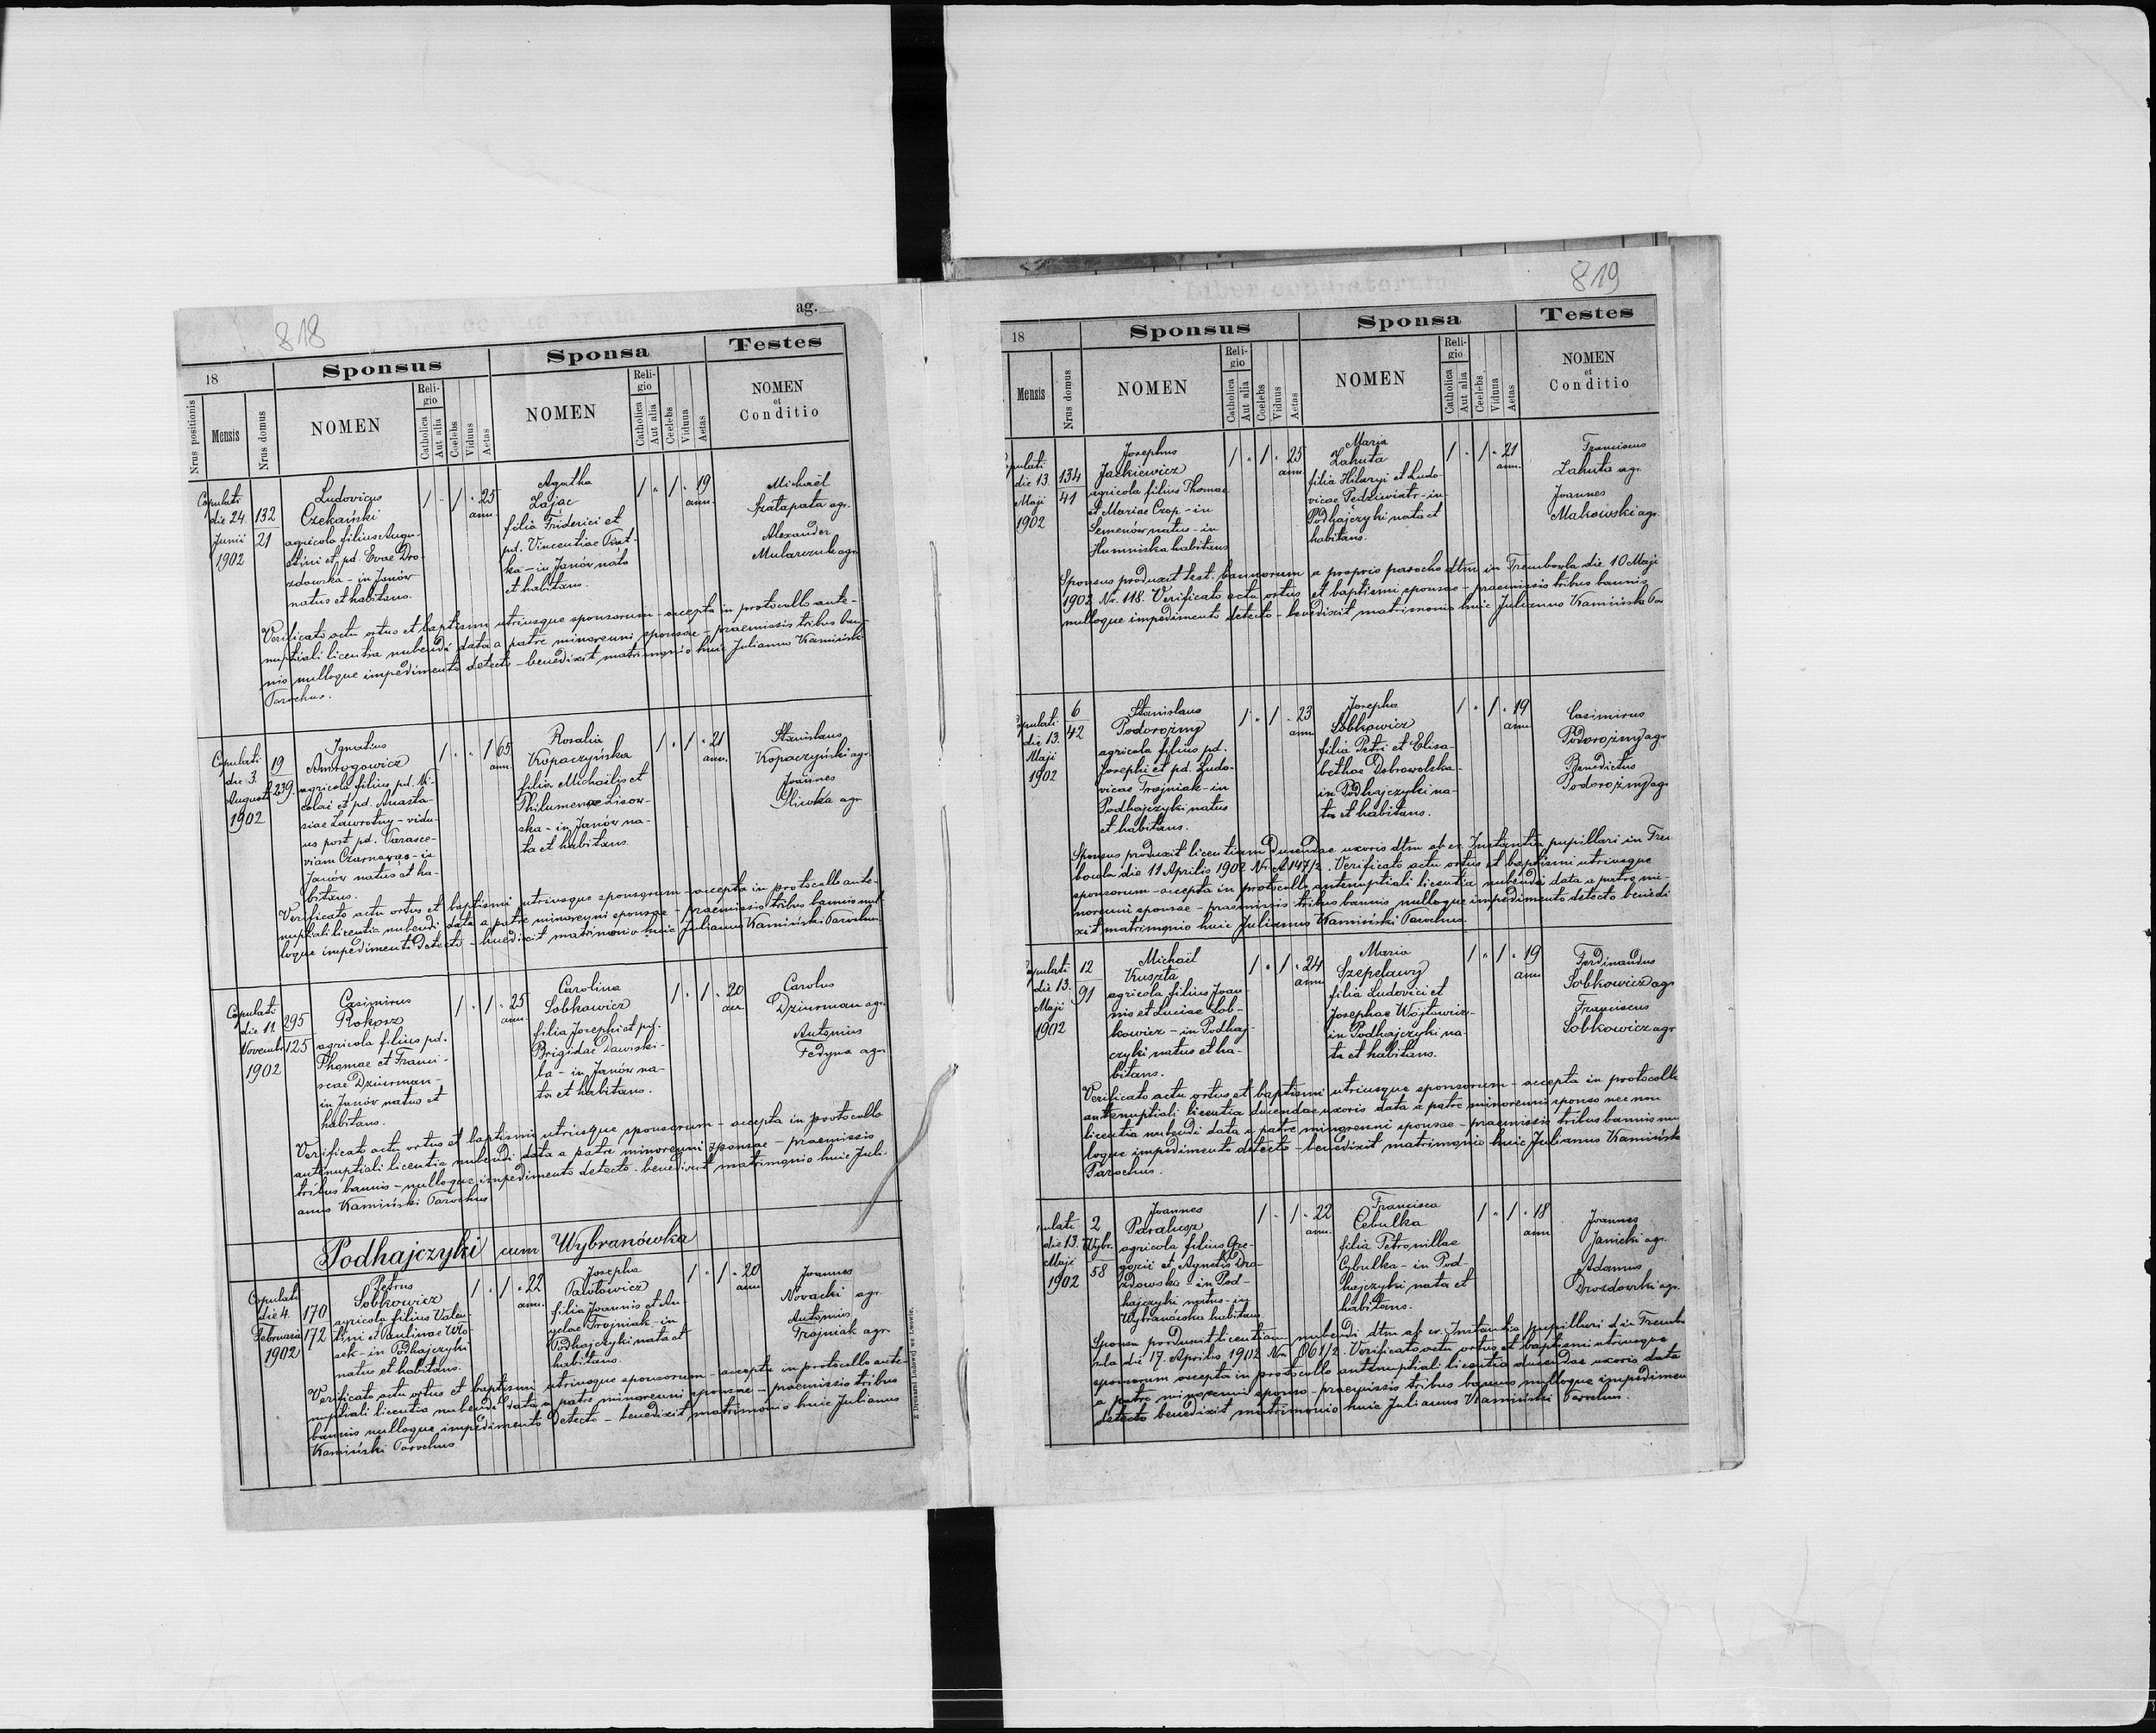 818
ag.
18
Sponsus
Sponsa
Testes
Nrus positionis
Mensis
Nrus domus
NOMEN
Religio
Catholica
Aut alia
Coelebs
Viduus
Aetas
NOMEN
Religio
Catholica
Aut alia
Ceelebs
Vidua
Aetas
NOMEN
et
Conditio
Copulati
die 24.
Junii
1902
132
21
Ludovicus
Czekaiński
agricola filius Augu-
stini et pd. Evae Dro-
zdowska - in Janów
natus et habitans.
1 " 1 " 25
ann.
Agatha
Zając
filia Friderici et
pd. Vincentiae
ka - in Janów nata
et habitans.
1 " 1 " 19
ann.
Michaël
Ratapata agr.
Alexander
Mularczuk agr.
Verificato actu ortus et baptismi utriusque sponsorum - accepta in protocollo ante-
nuptiali licentia nubendi data a patre minorenni sponsae - praemissis tribus ban-
nis nulloque impedimento detecto - benedixit matrimonio huic Julianus Kamiński
Parochus.
Copulati
die 3.
Augusti
1902
19
239.
Ignatius
Amrogowicz
agricola filius pd. Ni-
colai et pd. Anasta-
siae Zawrotny - vidu-
us post pd. Parasce-
viam - in
Janów natus et ha-
bitans.
1 " " 1 65
ann.
Rosalia
Kopaczyńska
filia Michaëlis et
Philumenae Lisow-
ska - in Janów na-
ta et habitans.
1 " 1 " 21
ann.
Stanislaus
Kopaczyński agr.
Joannes
Śliwka agr.
Verificato actu ortus et baptismi utriusque sponsorum - accepta in protocollo ante-
nuptiali licentia nubendi data a patre minorenni sponsae - praemissis tribus bannis nul-
loque impedimento detecto - benedixit matrimonio huic Julianus Kamiński Parochus.
Copulati
die 11.
Novembr.
1902
295
125
Casimirus
Rokosz
agricola filius pd.
Thomae et Franci-
scae Dziurman -
in Janów natus et
habitans.
1 " 1 " 25
ann.
Carolina
Sobkowicz
filia Josephi et pd.
Brigidae Dawiski-
ba - in Janów na-
ta et habitans.
1 " 1 " 20
ann.
Carolus
Dziurman agr.
Antonius
Fedyna agr.
Verificato actu ortus et baptismi utriusque sponsorum - accepta in protocollo
antenuptiali licentia nubendi data a patre minorenni sponsae - praemissis
tribus bannis - nulloque impedimento detecto - benedixit matrimonio huic Juli-
anus Kamiński Parochus
Podhajczyki cum Wybranówka
Copulati
die 4.
Februarii
1902
170
172
Petrus
Sobkowicz
agricola filius Valen-
tini et Paulinae Wło-
sek - in Podhajczyki
natus et habitans.
1 " 1 " 22
ann.
Josepha
Pawłowicz
filia Joannis et An-
gelae Trojniak - in
Podhajczyki nata et
habitans.
1 " 1 " 20
ann.
Joannes
Novacki agr.
Antonius
Trojniak agr.
Verificato actu ortus et baptismi utriusque sponsorum - accepta in protocollo ante-
nuptiali licentia nubendi data a patre minorenni sponsae - praemissis tribus
bannis nulloque impedimento detecto - benedixit matrimonio huic Julianus
Kamiński Parochus
Z Drukarni Ludowej we Lwowie.
819
18
Sponsus
Sponsa
Testes
Mensis
Nrus domus
NOMEN
Religio
Catholica
Aut alia
Coelebs
Viduus
Aetas
NOMEN
Religio
Catholica
Aut alia
Ceelebs
Vidua
Aetas
NOMEN
et
Conditio
pulati
die 13
Maji
1902
134
41
Josephus
Jackiewicz
agricola filius Thomae
et Mariae Czop - in
Semenów natus - in
Humniska habitans
1 " 1 " 25
ann.
Maria
Zahuta
filia Hilaryi et Ludo-
vicae Pędziwiatr - in
Podhajczyki nata et
habitans.
1 " 1 " 21
ann.
Franciscus
Zahuta agr.
Joannes
Makowski agr.
Sponsus produxit test. bannorum a proprio parocho dtm in Trembowla die 10 Maji
1902 Nr. 118. Verificato actu ortus et baptismi sponsae - praemissis tribus bannis
nulloque impedimento detecto - benedixit matrimonio huic Julianus Kamiński Par
pulati
die 13.
Maji
1902
6
42
Stanislaus
Podorożny
agricola filius pd.
Josephi et pd. Ludo-
vicae Trojniak - in
Podhajczyki natus
et habitans.
1 " 1 " 23
ann.
Josepha
Sobkowicz
filia Petri et Elisa-
bethae Dobrowolska -
in Podhajczyki na-
ta et habitans.
1 " 1 " 19
ann.
Casimirus
Podorożny agr
Benedictus
Podorożny agr
Sponsus produxit licentiam ducendae uxoris dtm ab er. Instantia pupillari in Trem
bowla die 11 Aprilis 1902 Nr. A 147/2. Verificato actu ortus et baptismi utriusque
sponsorum - accepta in protocollo antenuptiali licentia nubendi data a patre mi-
norenni sponsae - praemissis tribus bannis nulloque impedimento detecto benedi
xit matrimonio huic Julianus Kamiński Parochus.
pulati
die 13.
Maji
1902
12
91
Michaël
Kuszta
agricola filius Joan-
nis et Luciae Sob-
kowicz - in Podhaj-
czyki natus et ha-
bitans.
1 " 1 " 24
ann.
Maria
Szepelawy
filia Ludovici et
Josephae Wojtowicz -
in Podhajczyki na-
ta et habitans.
1 " 1 " 19
ann.
Ferdinandus
Sobkowicz agr
Franciscus
Sobkowicz agr
Verificato actu ortus et baptismi utriusque sponsorum - accepta in protocollo
antenuptiali licentia ducendae uxoris data a patre minorenni sponso nec non
licentia nubendi data a patre minorenni sponsae - praemissis tribus bannis nul
loque impedimento detecto - benedixit matrimonio huic Julianus Kamiński
Parochus.
pulati
die 13.
Maji
1902
2
Wybr.
58
Joannes
Paralusz
agricola filius Gre-
gorii et Agnetis Dro-
zdowska - in Pod-
hajczyki natus - in
Wybranówka habitans
1 " 1 " 22
ann.
Francisca
Cebulka
filia Petronillae
Cybulka - in Pod-
hajczyki nata et
habitans.
1 " 1 " 18
ann
Joannes
Janicki agr.
Adamus
Drozdowski agr.
Sponsa produxit licentiam nubendi dtm ab er. Instantia pupillari d in Trembo
wla die 17. Aprilis 1902 Nr. 61/2. Verificato actu ortus et baptismi utriusque
sponsorum accepta in protocollo antenuptiali licentia ducendae uxoris data
a patre minorenni sponso - praemissis tribus bannis nulloque impedimen
detecto benedixit matrimonio huic Julianus Kamiński Parochus.